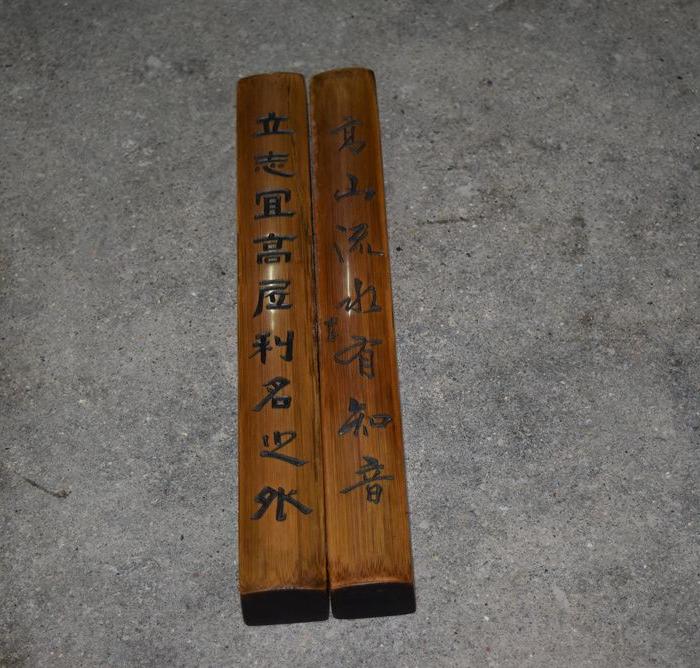 高山流水有知音
立志宜高居利名之外